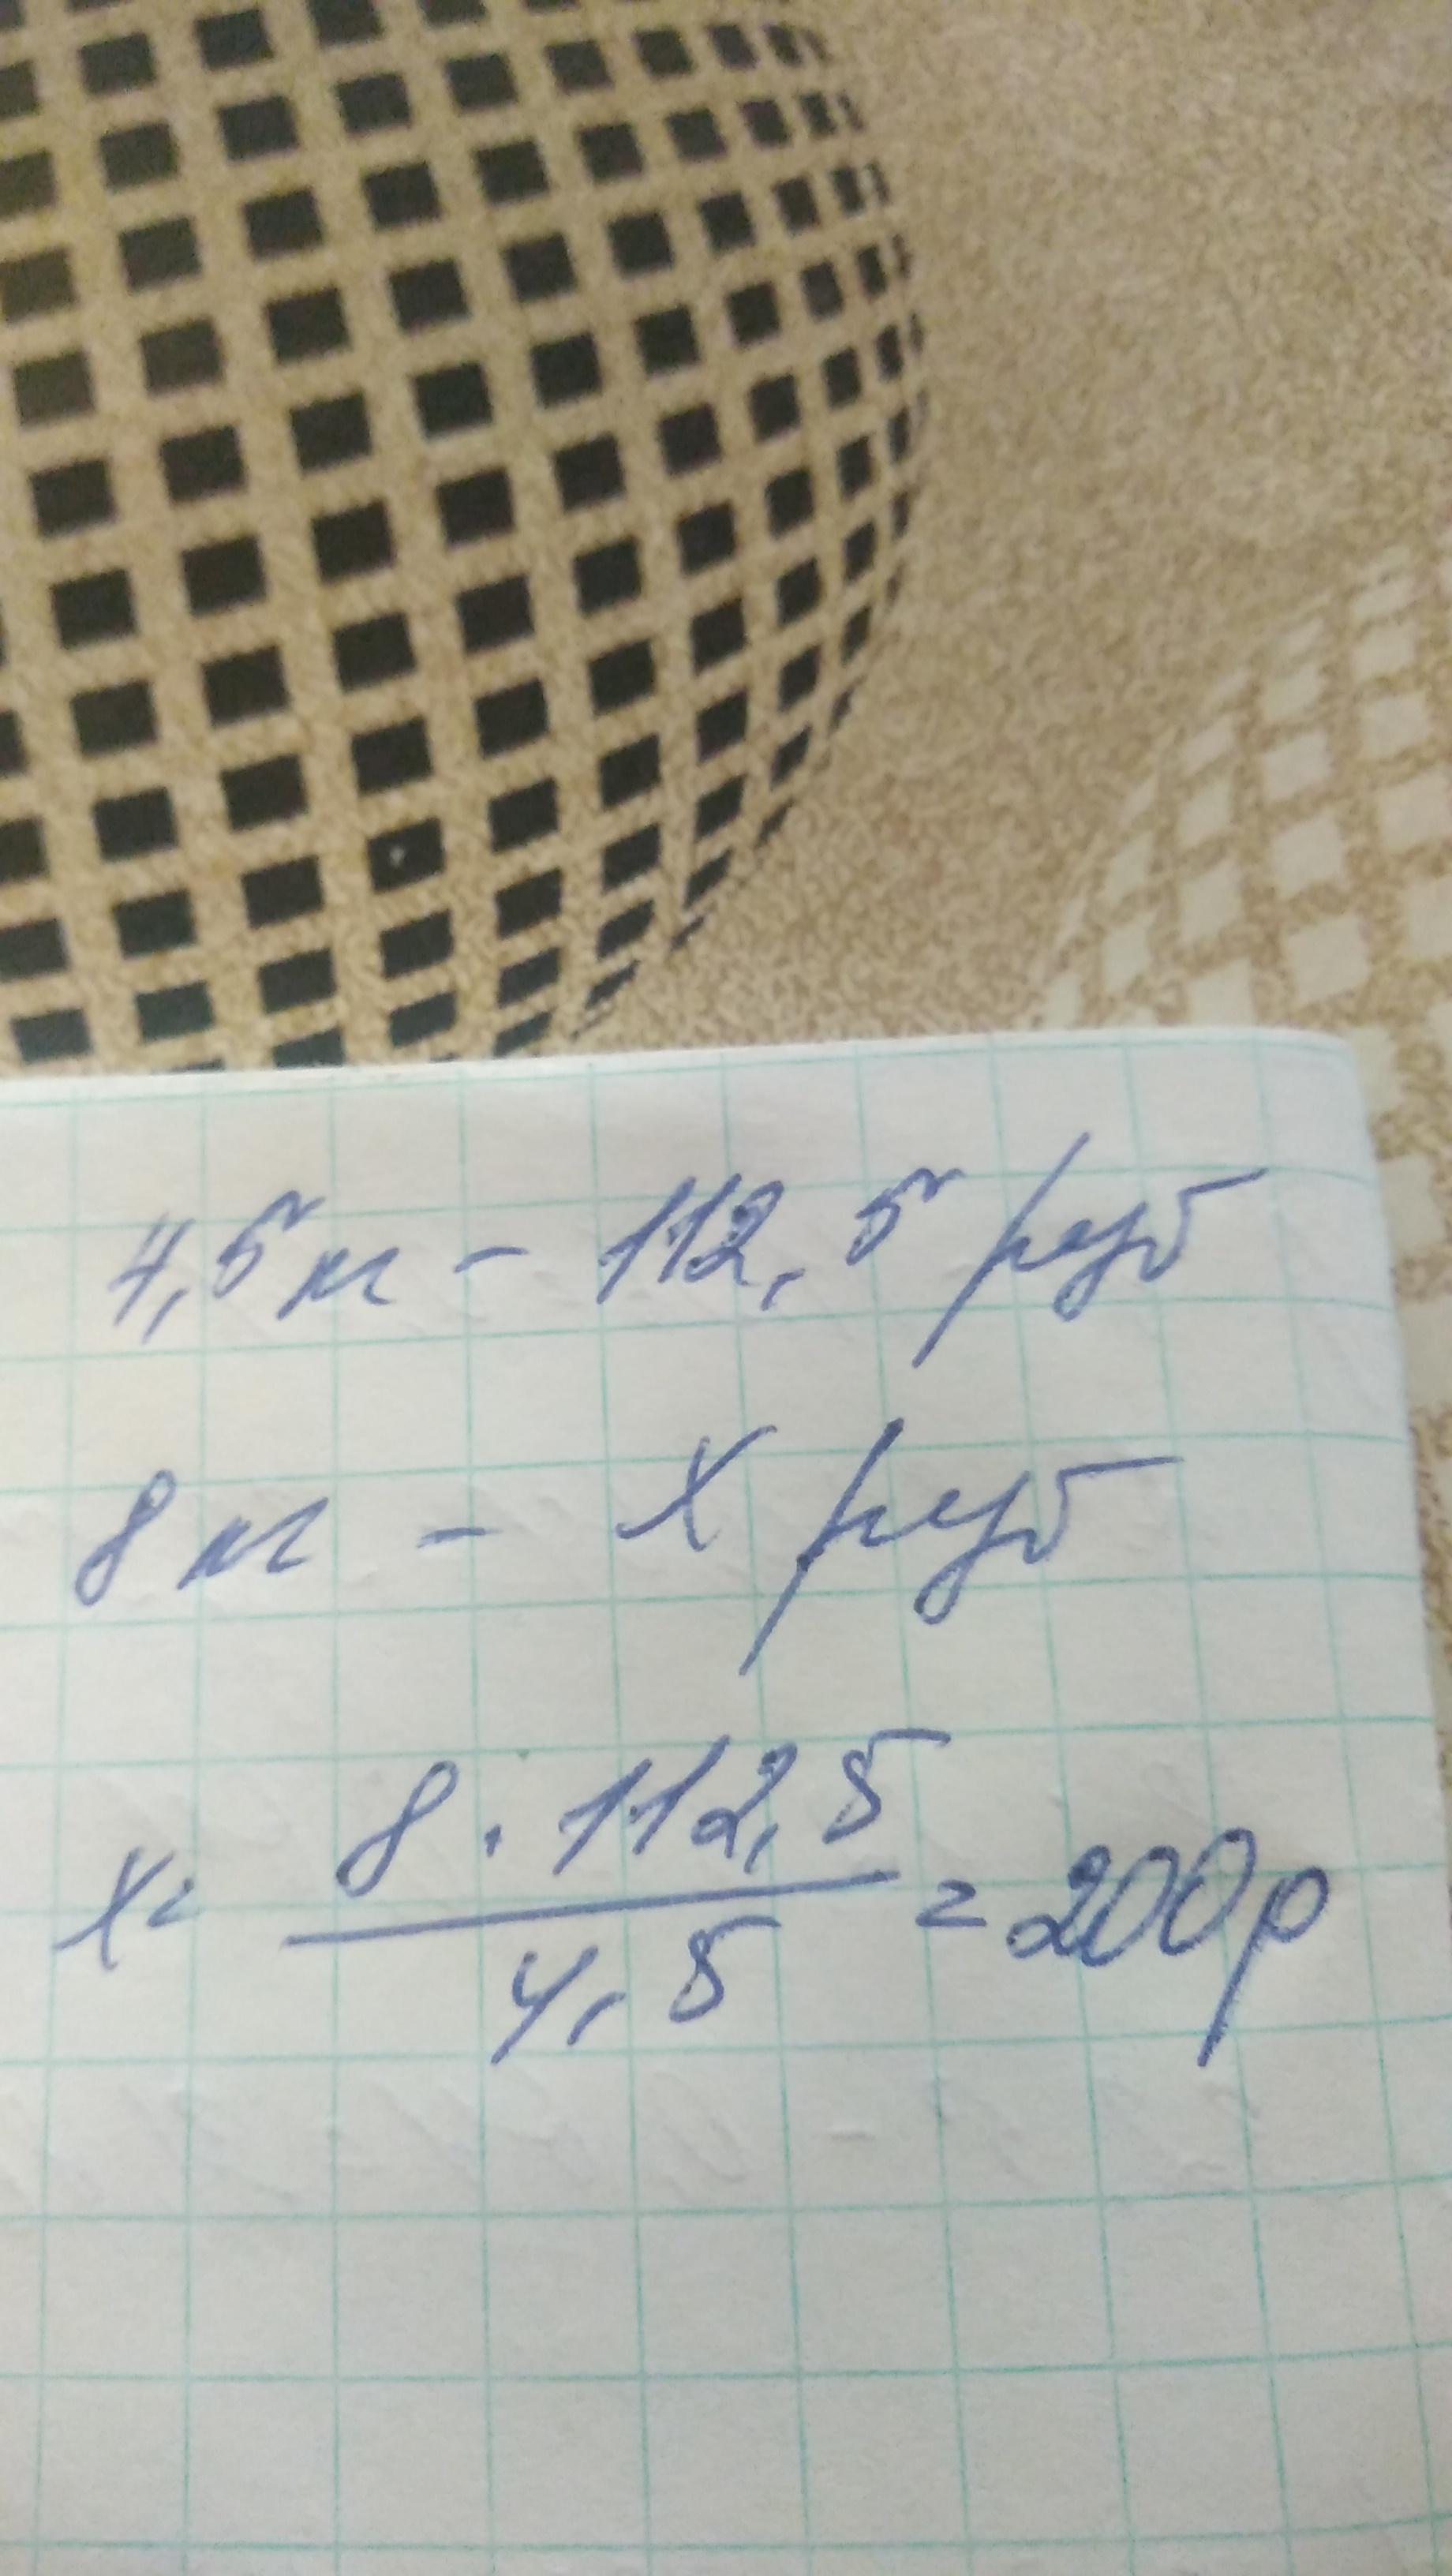 4,5 кг - 112,5 руб
8 кг - х руб
х = 8 · 112,5 / 4,5 = 200р